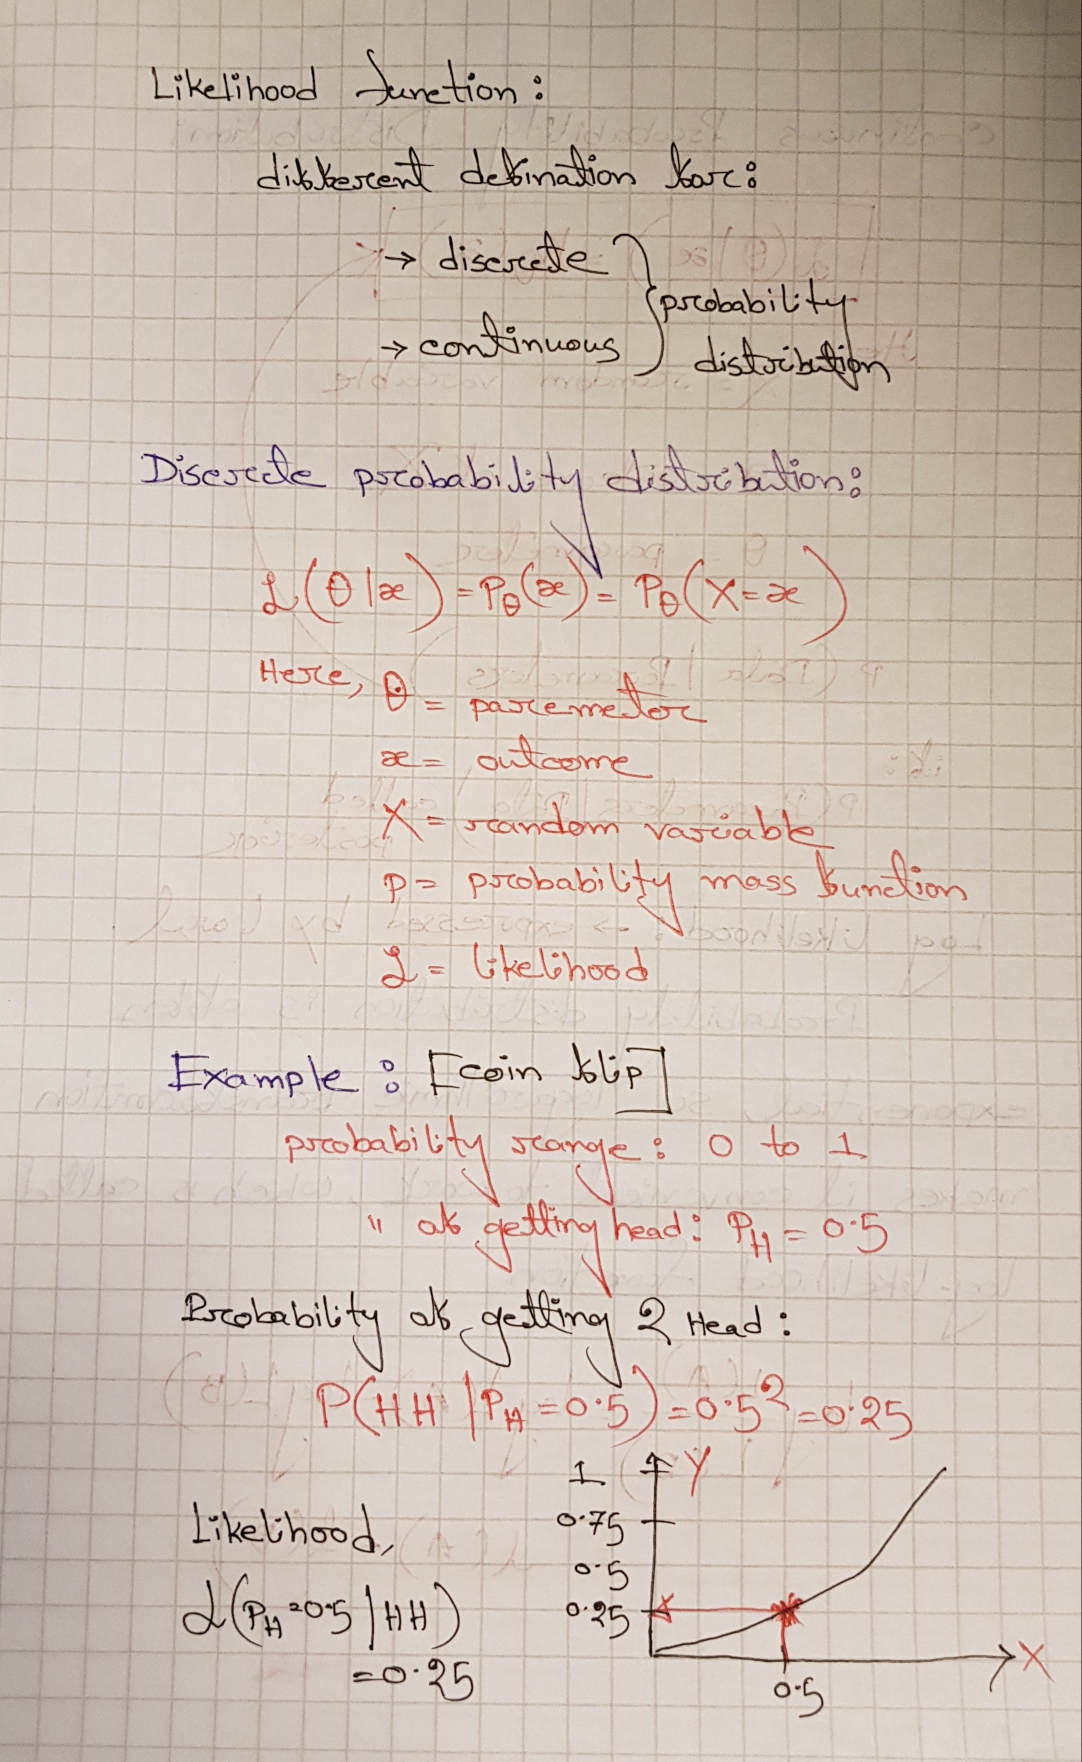 Likelihood function:
different defination for:
→ discrete
→ continuous
probability
distribution
Discrete probability distribution:
L(θ|x) = Pθ(x) = Pθ(X=x)
Here, θ = paremetor
x = outcome
X = random variable
p = probability mass function
L = likelihood
Example : [coin flip]
probability range: 0 to 1
" of getting head: PH = 0.5
Probability of getting 2 Head:
P(HH | PH = 0.5) = 0.5² = 0.25
Likelihood,
L(PH = 0.5 | HH)
= 0.25
1 Y
0.75
0.5
0.25
X
0.5